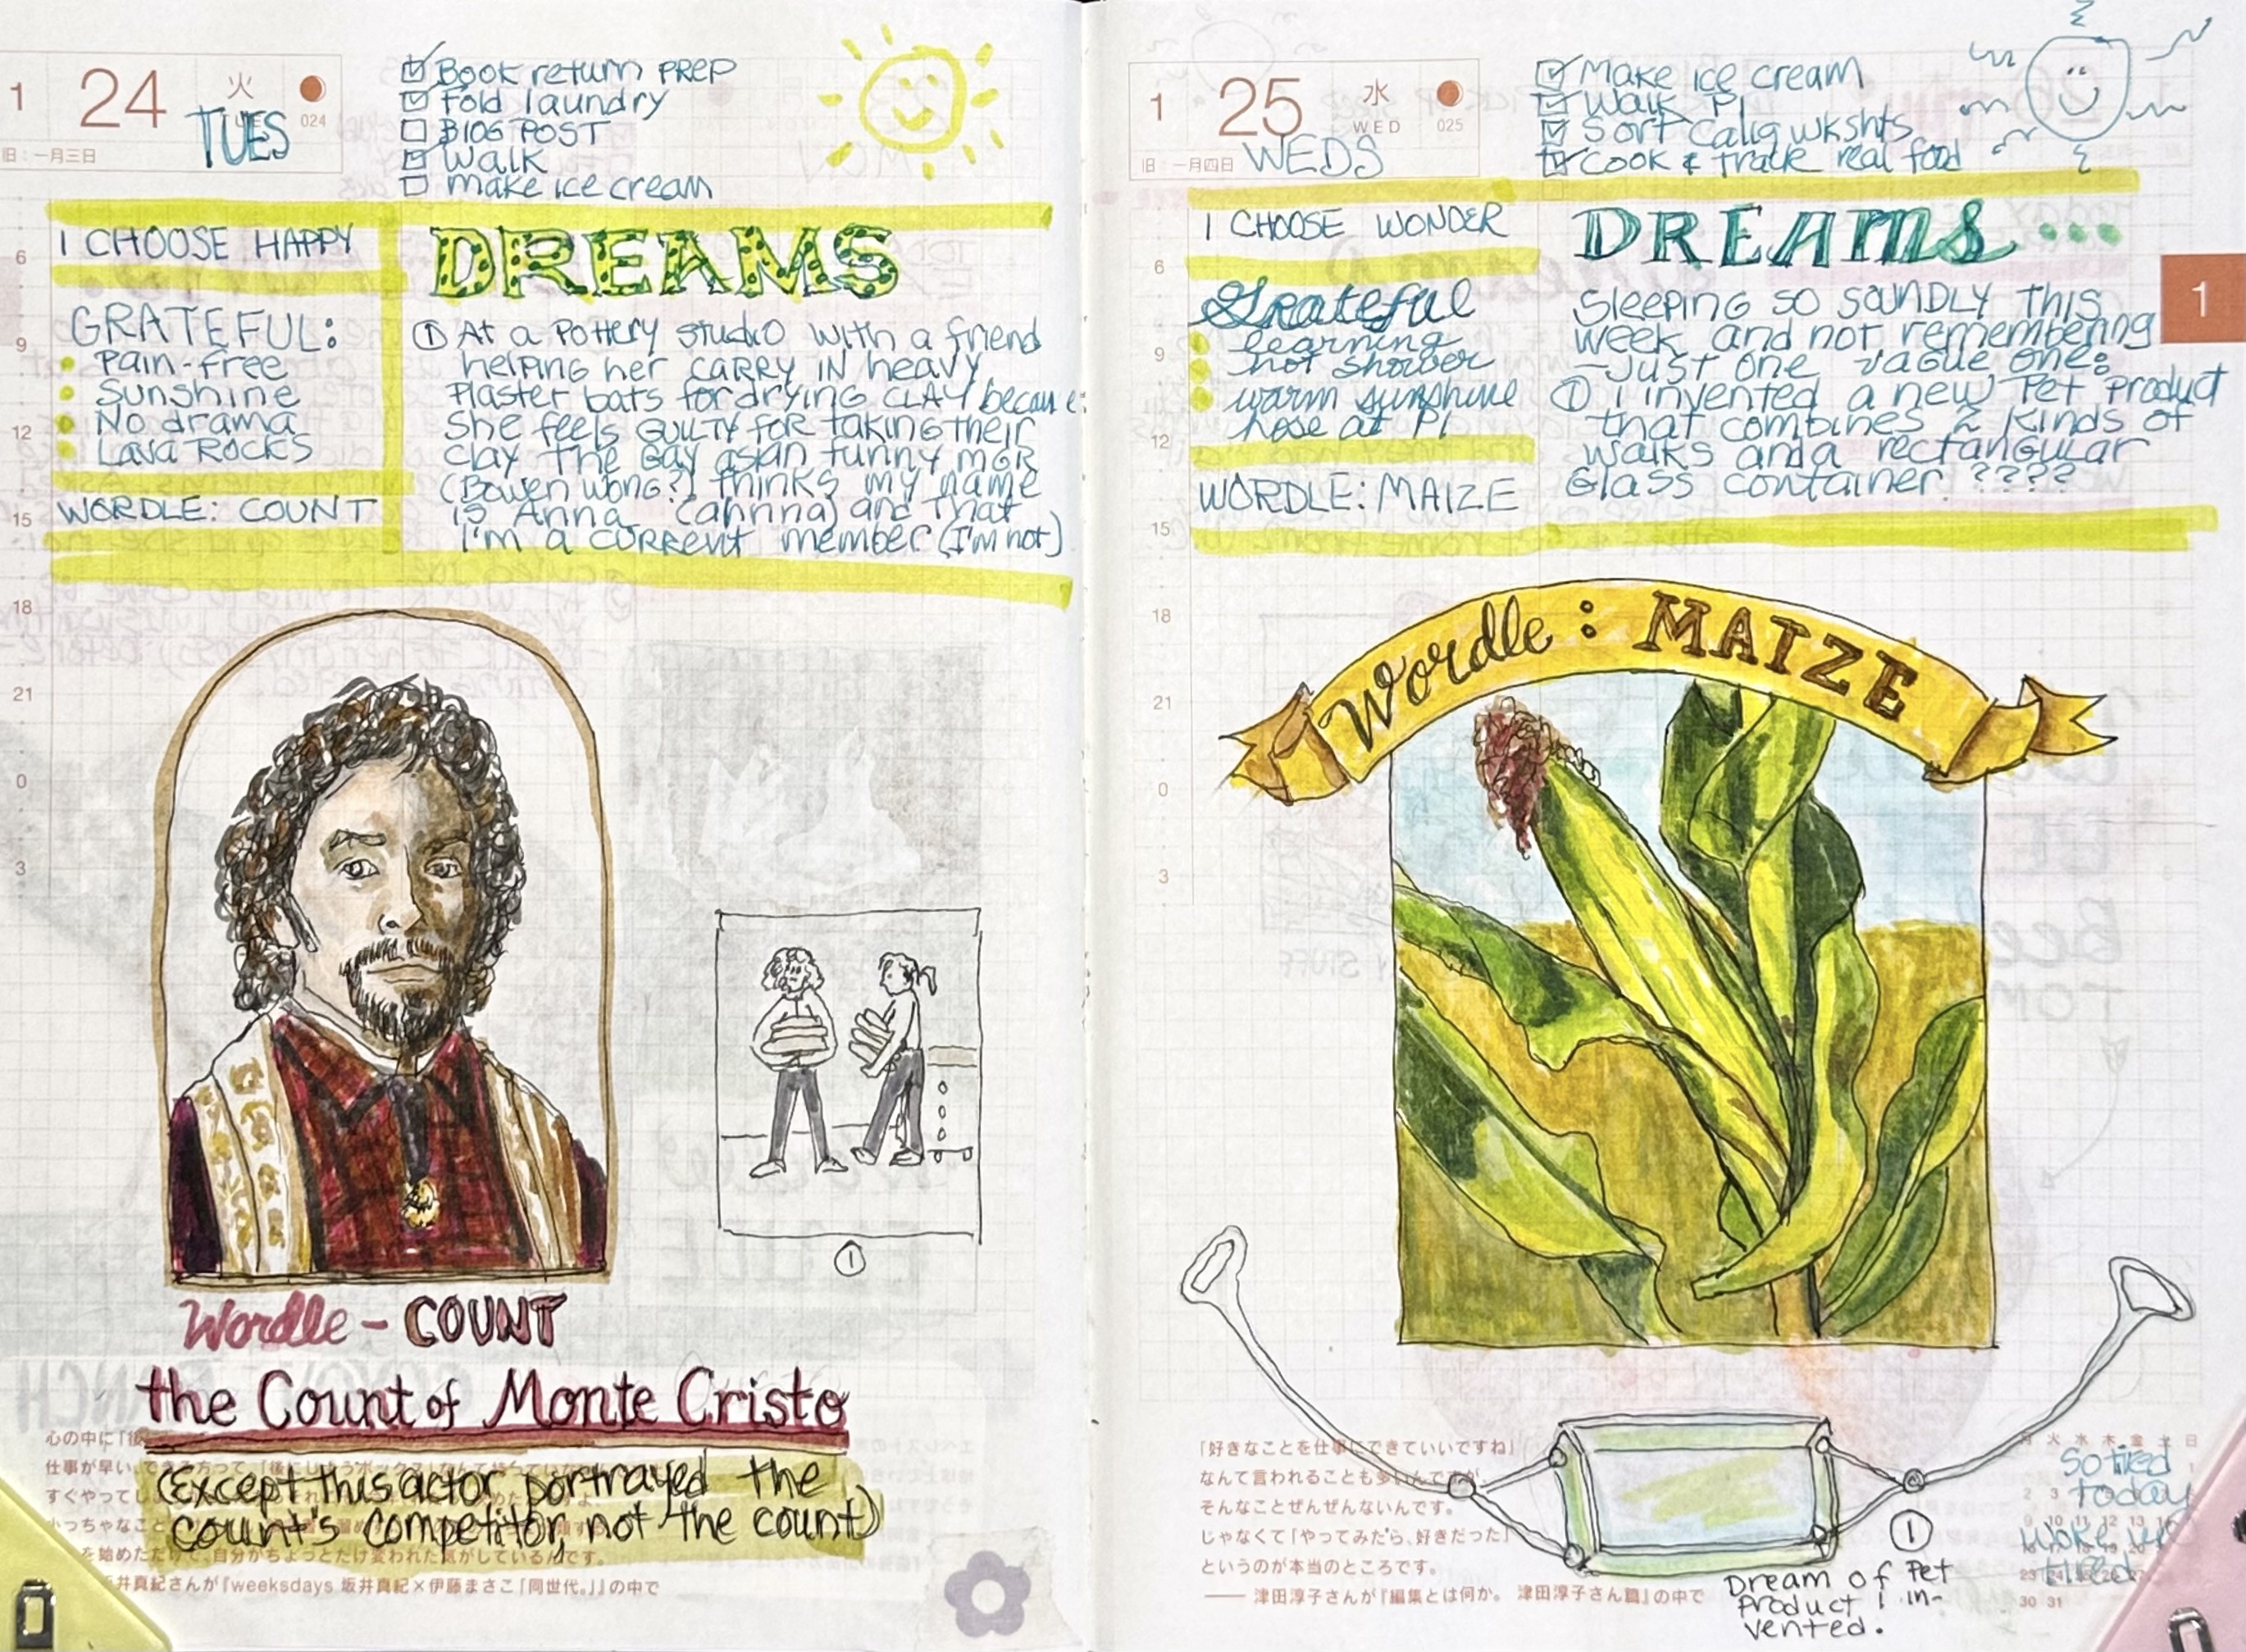 1 24 火
TUES
024
旧：一月三日
Book return PREP
Fold laundry
BLOG POST
Walk
make ice cream
I CHOOSE HAPPY
GRATEFUL:
Pain-free
Sunshine
No drama
Lava Rocks
WORDLE: COUNT
DREAMS
① At a Pottery studio with a friend
helping her CARRY IN heavy
Plaster bats for drying CLAY because
she feels GUILTY FOR taking their
clay. The Gay asian funny MGR
(Bowen Wong?) thinks my name
is Anna (ahnna) and that
I'm a current member (I'm not)
6
9
12
15
18
21
0
3
①
Wordle - COUNT
the Count of Monte Cristo
(Except this actor portrayed the
count's competitor, not the count)
心の中に「後
仕事が早い
すぐやってし
小っちゃなこと
を始めただけで、自分がちょっとだけ変われた気がしているんです。
井真紀さんが『weeksdays 坂井真紀×伊藤まさこ「同世代。」』の中で
1 25 水
WED
025
旧：一月四日
WEDS
Make ice cream
Walk PI
Sort Calig wkshts
Cook & track real food
I CHOOSE WONDER
Grateful
learning
hot shower
warm sunshine
hose at PI
WORDLE: MAIZE
DREAMS...
Sleeping so soundly this
week and not remembering
-Just one vague one:
① I invented a new Pet product
that combines 2 kinds of
walks and a rectangular
Glass container ????
1
6
9
12
15
18
21
0
3
Wordle: MAIZE
「好きなことを仕事にできていいですね」
なんて言われることも多いんですが、
そんなことぜんぜんないんです。
じゃなくて「やってみたら、好きだった」
というのが本当のところです。
—— 津田淳子さんが『編集とは何か。 津田淳子さん篇』の中で
①
Dream of Pet
Product I in-
vented.
月 火 水 木 金 土 日
30 31
So tired
today
woke up
tired